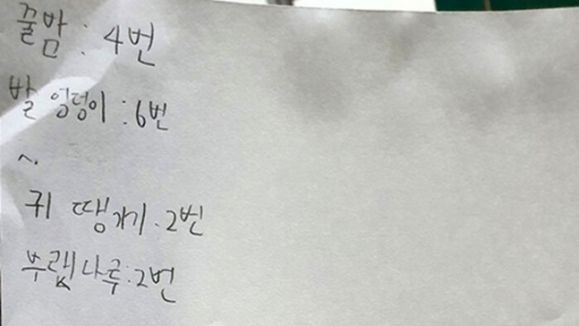 꿀밤 : 4번
발 엉덩이 : 6번
~
귀 땡기기 : 2번
뿌렙나루 : 2번